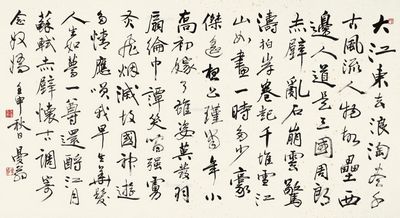 大江東去浪淘盡千
古風流人物故壘西
邊人道是三國周郎
赤壁亂石崩雲驚
濤拍岸卷起千堆雪江
山如畫一時多少豪
傑遙想公瑾當年小
喬初嫁了雄姿英發羽
扇綸巾譚笑間強虜
灰飛烟滅故國神遊
多情應笑我早生華髮
人生如夢一尊還酹江月
蘇軾赤壁懷古調寄
念奴嬌 壬申秋日曼翁